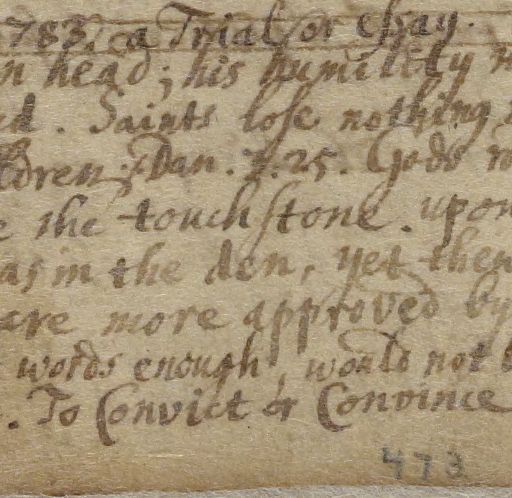 1783. a Trial or essay.
n head; his humility
d. Saints lose nothing
ldren; Dan. 3.25. Gods
e the touchstone. upon
as in the den, yet then
are more approved by
words enough, would not b
. To Convict or Convince
473